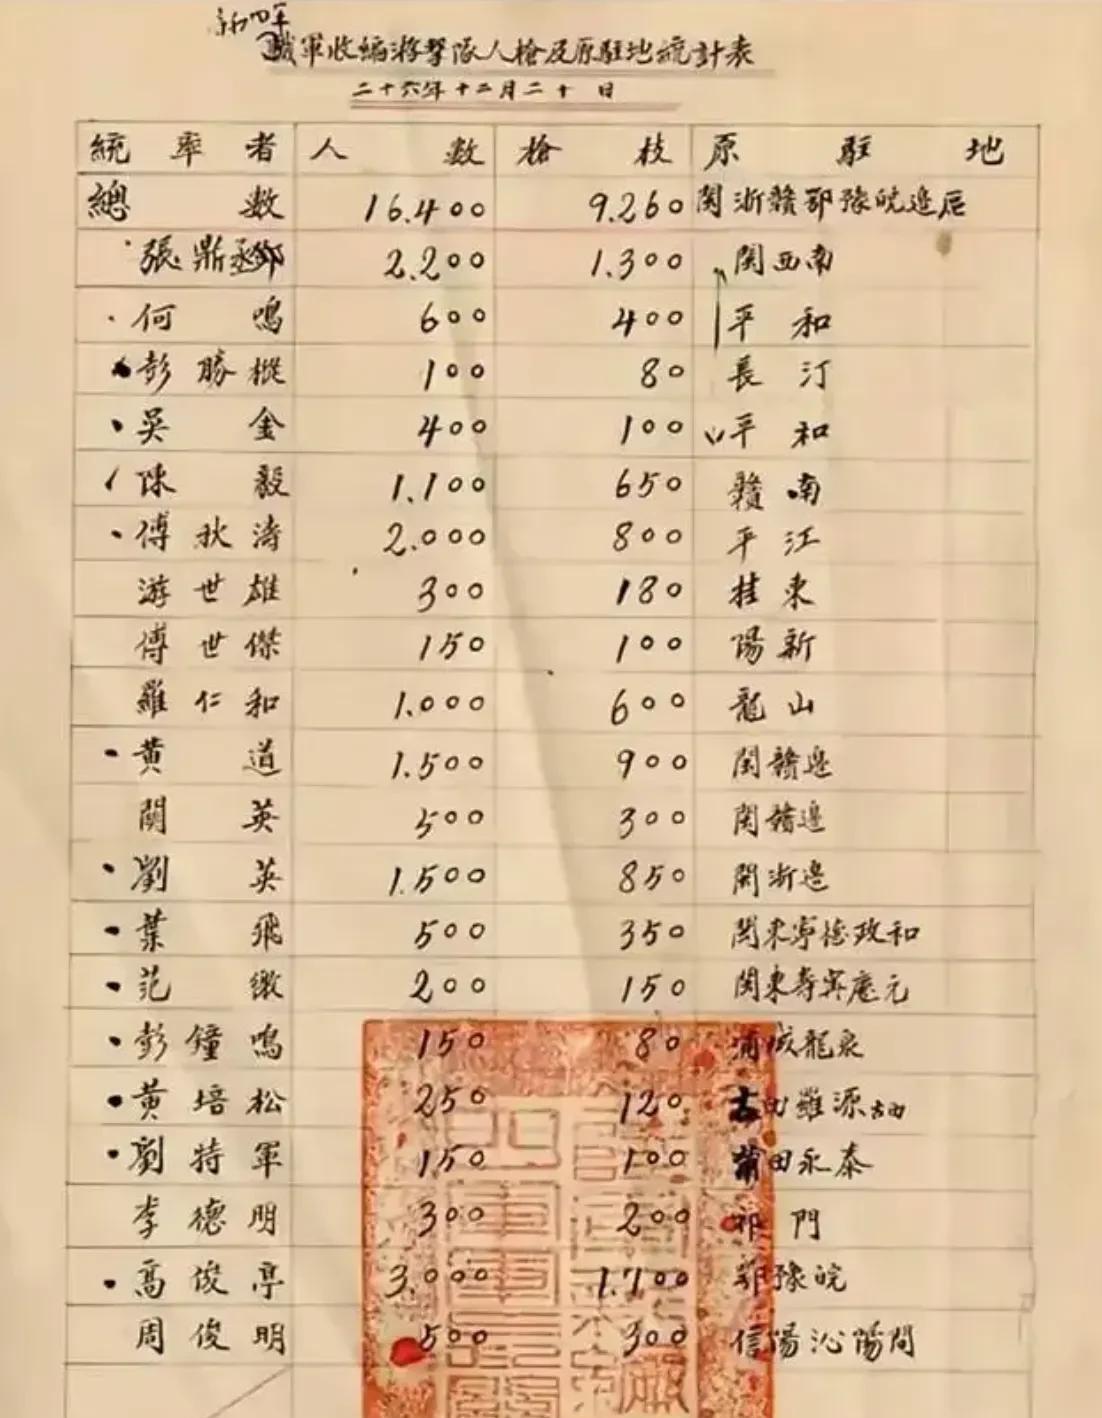 新四军
職軍收編游擊隊人槍及原駐地統計表
二十六年十二月二十日
統率者 人數 槍枝 原駐地
總數 16.400 9.260 閩浙贛鄂豫皖邊區
張鼎丞鄧 2.200 1.300 閩西南
何鳴 600 400 平和
彭勝樅 100 80 長汀
吳金 400 100 平和
陳毅 1.100 650 贛南
傅秋濤 2.000 800 平江
游世雄 300 180 桂東
傅世傑 150 100 陽新
羅仁和 1.000 600 龍山
黃道 1.500 900 閩贛邊
關英 500 300 閩贛邊
劉英 1.500 850 閩浙邊
葉飛 500 350 閩東寧德政和
范繳 200 150 閩東壽寧慶元
彭鐘鳴 150 80 浦城龍泉
黃培松 250 120 古田羅源古田
劉特軍 150 100 莆田永泰
李德明 300 200 祁門
高俊亭 3.000 1.700 鄂豫皖
周俊明 500 300 信陽沁陽間